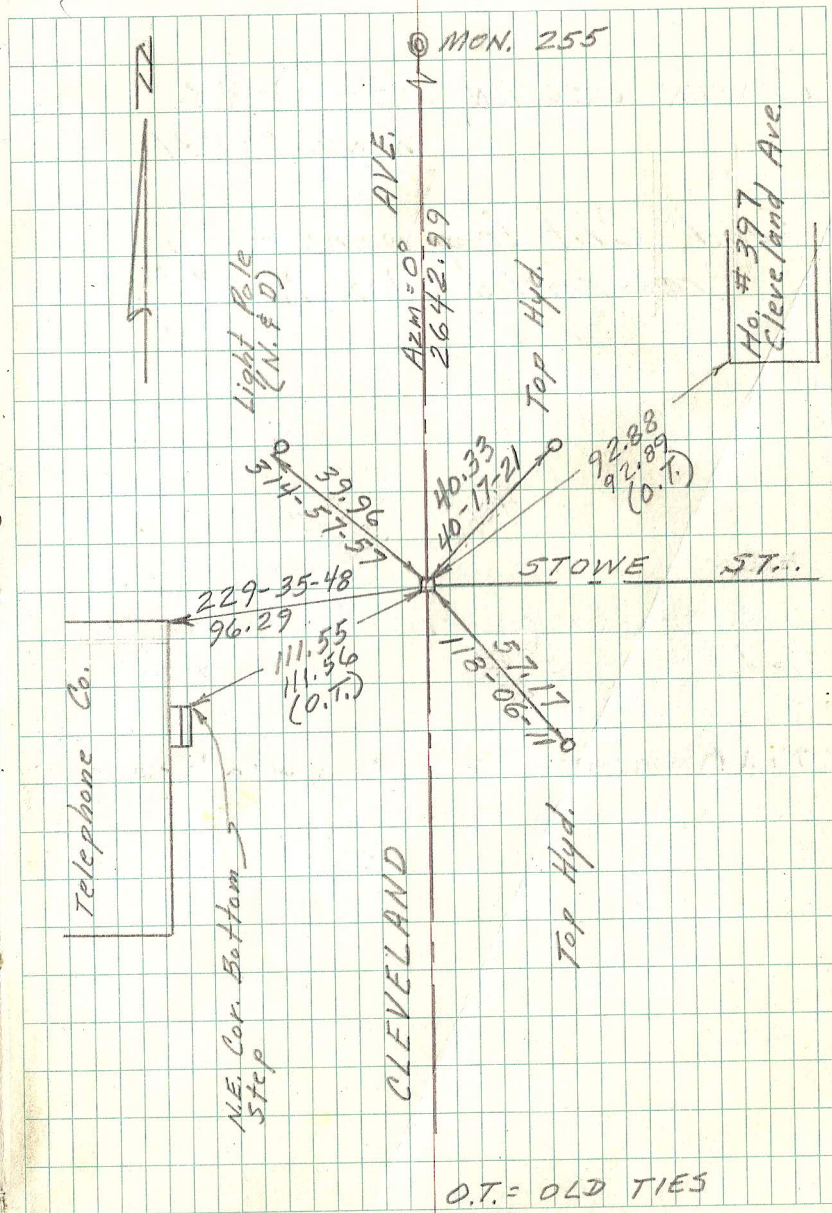 N
MON. 255
AVE.
Azm = 0°
2642.99
Light Pole
(N. & D)
Top Hyd.
Ho. # 397
Cleveland Ave.
39.96
314-57-57
40.33
40-17-21
92.88
92.89
(O.T.)
STOWE ST.
229-35-48
96.29
111.55
111.56
(O.T.)
57.17
118-06-11
Telephone Co.
N.E. Cor. Bottom
Step
CLEVELAND
Top Hyd.
O.T. = OLD TIES